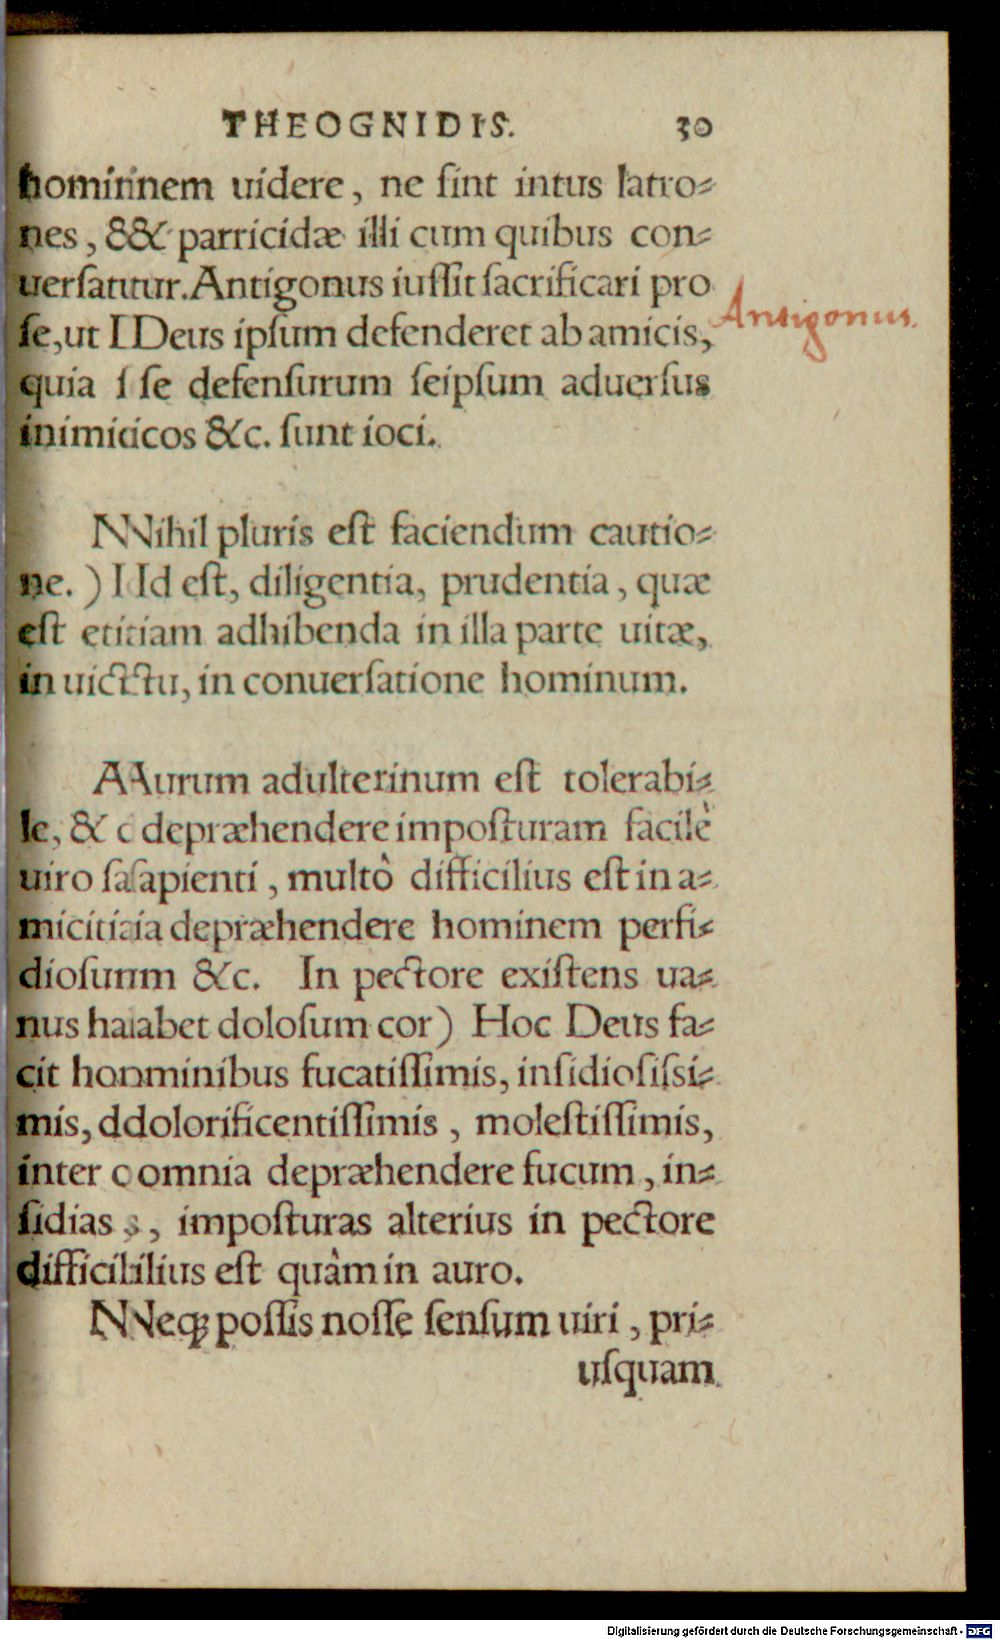 THEOGNIDIS. 30
homirinem uidere, ne ſint intus latro⸗
nes, && parricidæ illi cum quibus con⸗
uerſantur. Antigonus iuſſit ſacrificari pro
ſe, ut IDeus ipſum defenderet ab amicis,
Antigonus.
quia ſ ſe defenſurum ſeipſum aduerſus
inimiticos &c. ſunt ioci.
NNihil pluris eſt faciendum cautio⸗
ne.) IId eſt, diligentia, prudentia, quæ
eſt etitiam adhibenda in illa parte uitæ,
in uictctu, in conuerſatione hominum.
AAurum adulterinum eſt tolerabi⸗
le, & c depræhendere impoſturam facilè
uiro ſaſapienti, multò difficilius eſt in a⸗
micitiaia depræhendere hominem perfi⸗
dioſumm &c. In pectore exiſtens ua⸗
nus haiabet doloſum cor) Hoc Deus fa⸗
cit honminibus fucatiſſimis, inſidioſiſsi⸗
mis, ddolorificentiſſimis, moleſtiſſimis,
inter o omnia depræhendere fucum, in⸗
ſidias s, impoſturas alterius in pectore
difficililius eſt quàm in auro.
NNeq; poſſis noſſe ſenſum uiri, pri⸗
uſquam
Digitalisierung gefördert durch die Deutsche Forschungsgemeinschaft - DFG